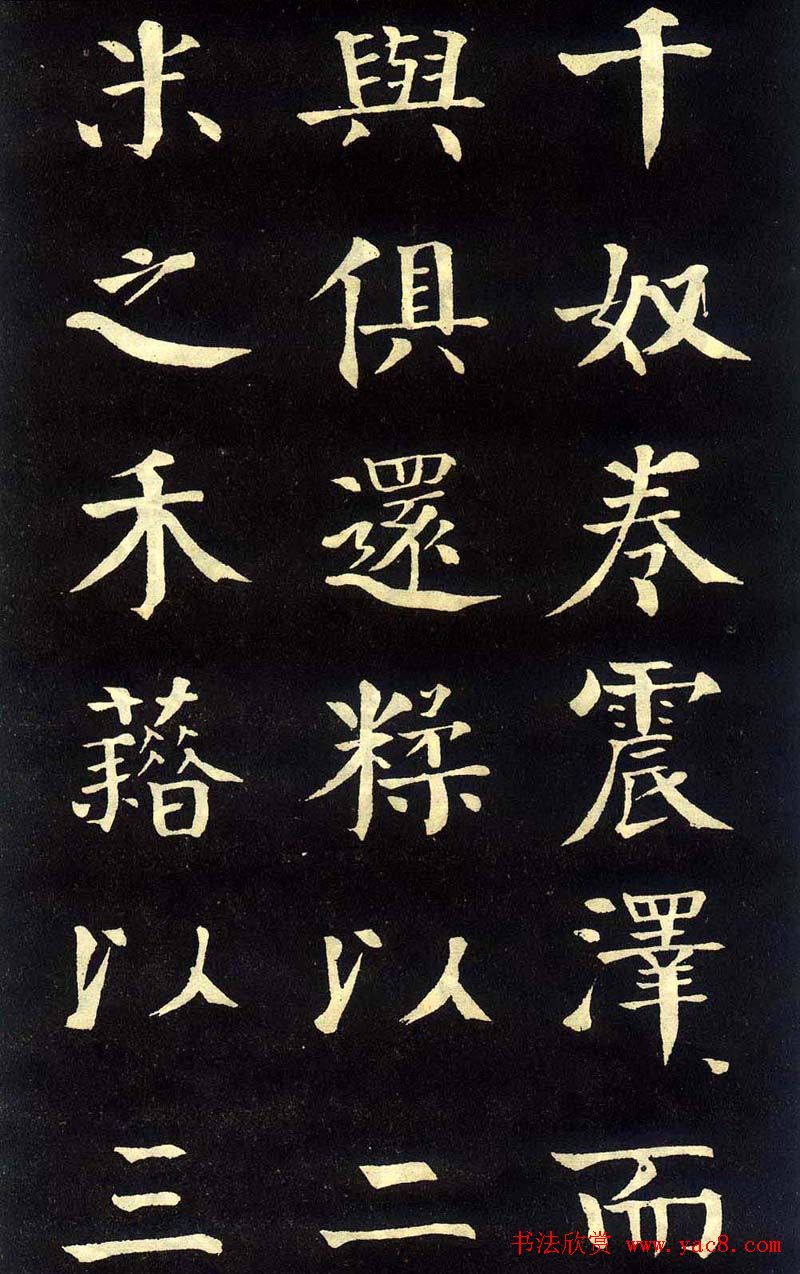 千奴卷震澤、而
與俱還糅以二
米之禾藉以三
书法欣赏 www.yac8.com